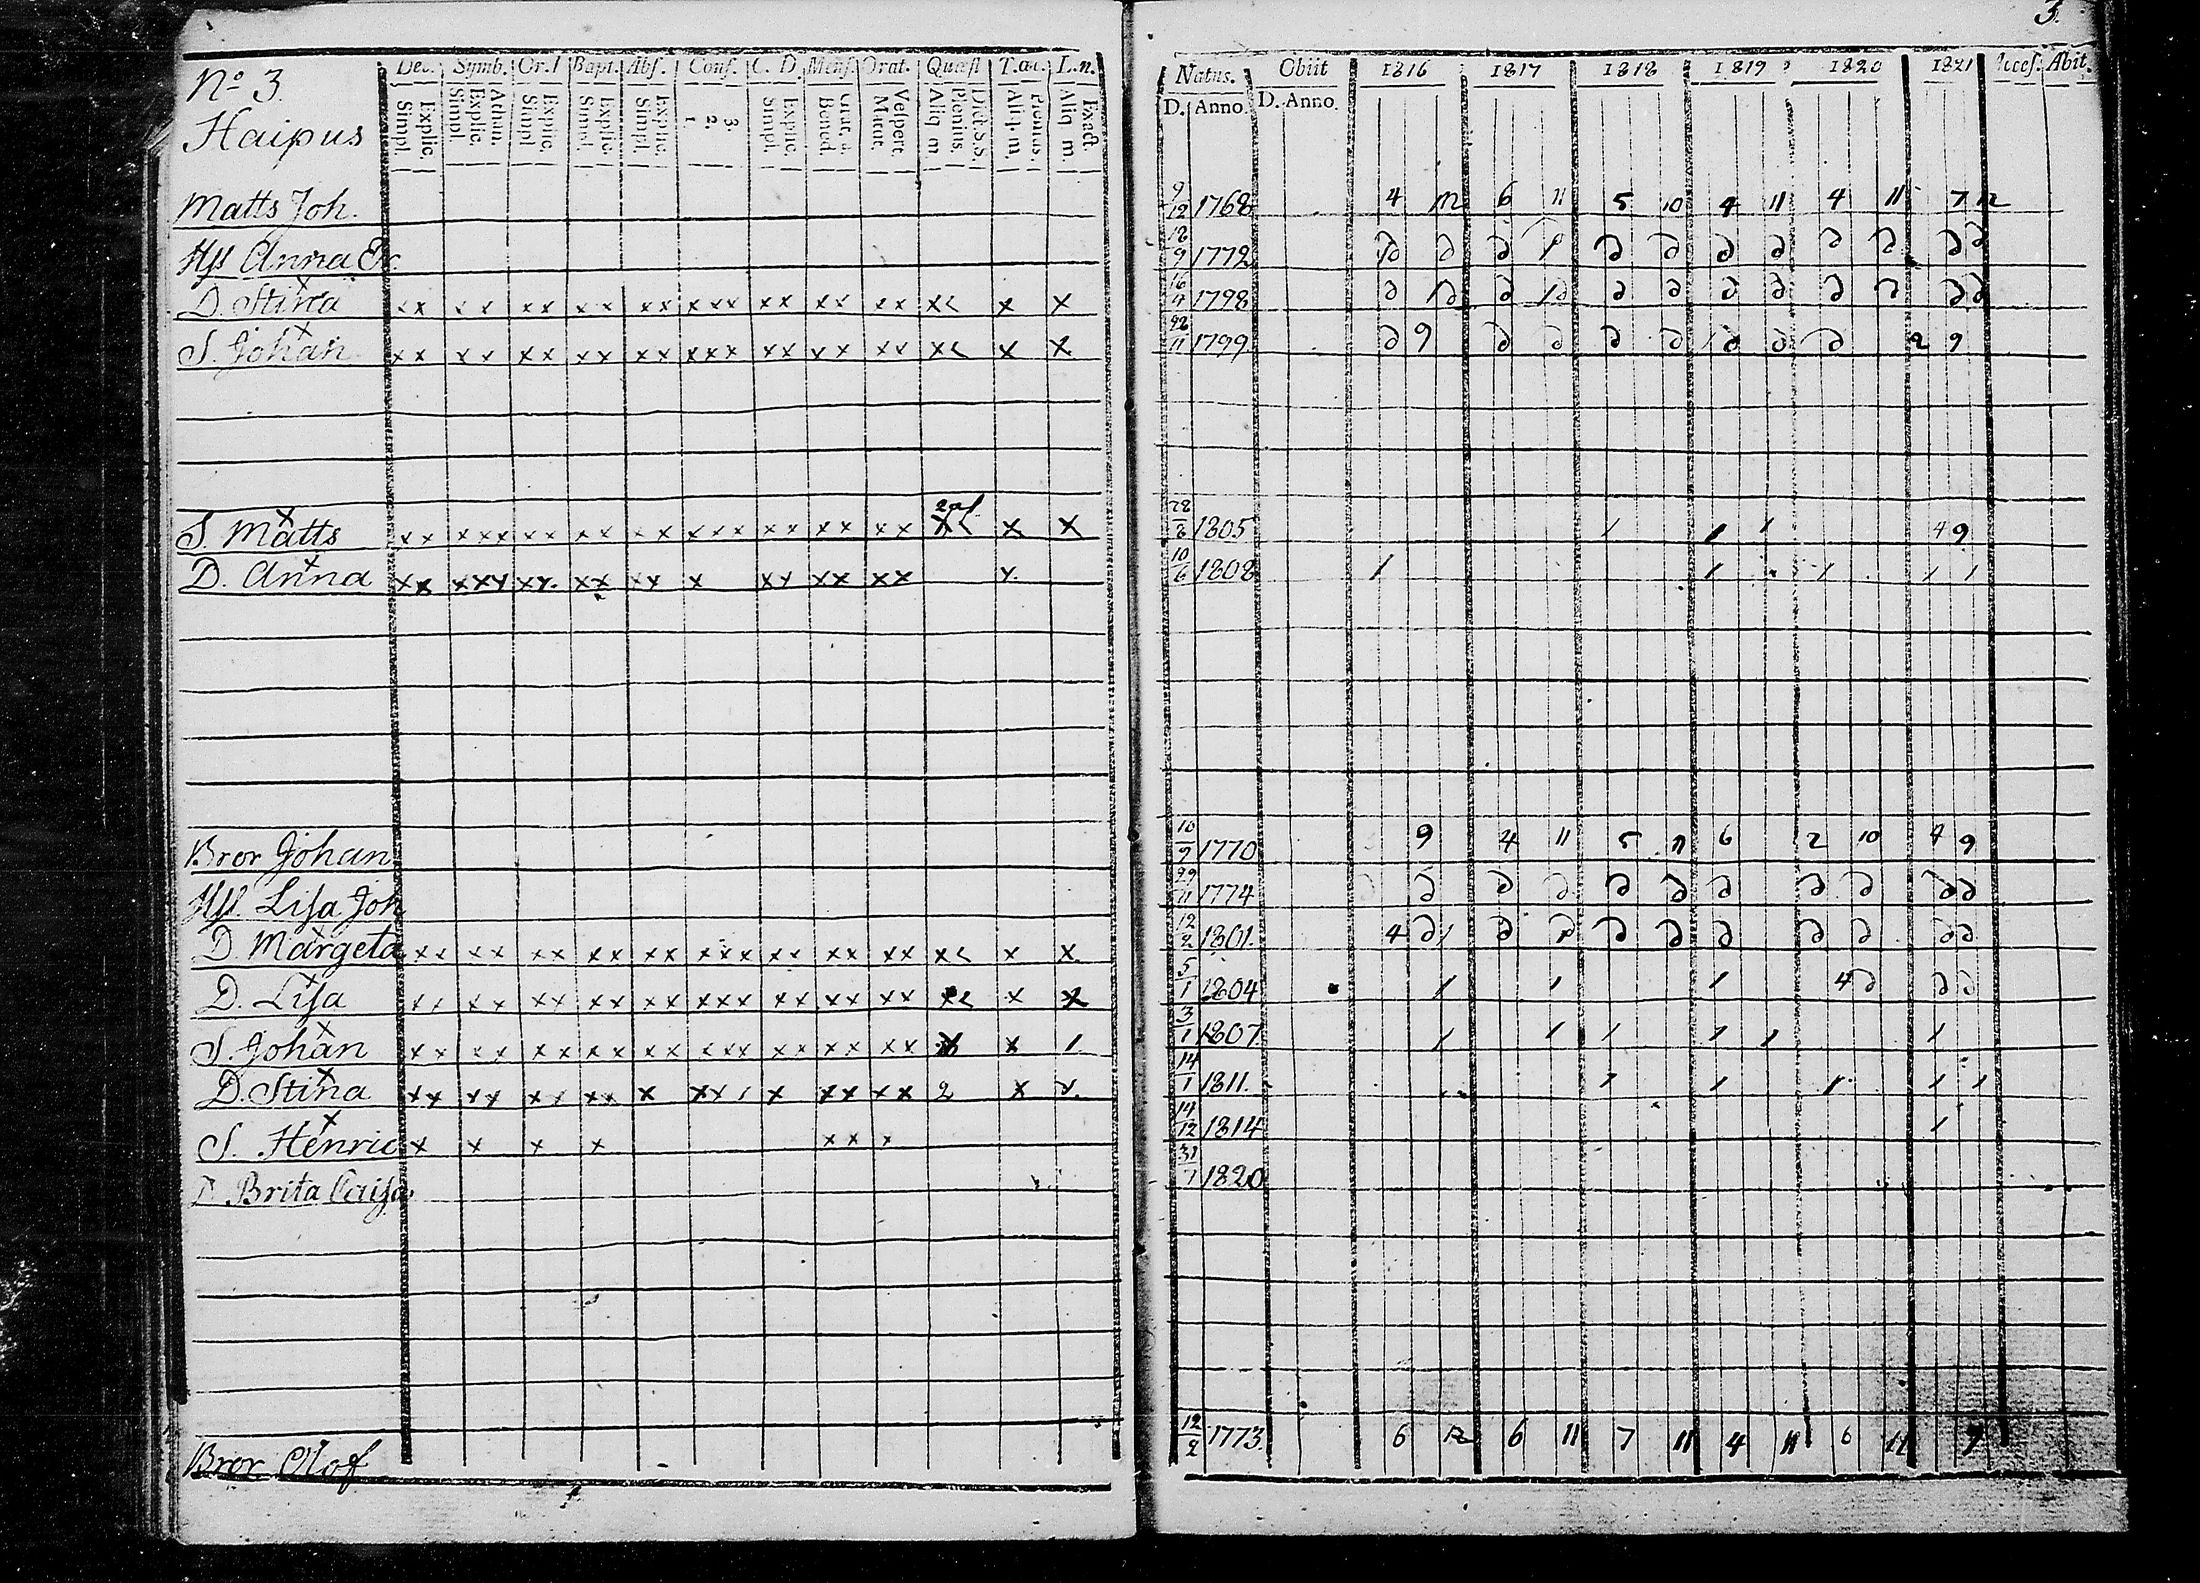 3.
Nº 3.
Haipus
Dec. Symb. Or. Bapt. Abs. Conf. C. D. Mens. Orat. Quæst T. L. n.
Simpl. Explic. Simpl. Explic. Athan. Simpl. Explic. Simpl. Explic. Simpl. Explic. 1 2. 3. Simpl. Explic. Bened. Matut. Vespert. Aliq. m. Plenius. Dict. S. S. Aliq. m. Plenius. Aliq. m. Exact
Natus. Obiit 1816 1817 1818 1819 1820 1821 Acces. Abit.
D. Anno. D. Anno.
Matts Joh. 9/12 1768 4 12 6 11 5 10 4 11 4 11 7 12
Hst Anna Er. 1772
D. Stina x x x x x x x x x x x x x x x x x x x x x 16/4 1798
S. Johan x x x x x x x x x x x x x x x x x x x x x 1799 9 2 9
S. Matts x x x x x x x x x x x x x x x x x x x x x x 28/8 1805 1 1 1 4 9
D. Anna x x x x x x x x x x x x x x x x x x x 10/6 1808 1 1 1 1 1
Bror Johan 10/9 1770 9 4 11 5 11 6 2 10 4 9
Hst. Lisa Joh 29/11 1774
D. Margeta x x x x x x x x x x x x x x x x x x x x x x 12/2 1801. 4
D. Lisa x x x x x x x x x x x x x x x x x x x x x x 5/1 1804 1 1 1 4
S. Johan x x x x x x x x x x x x x x x x x x x x x 1 3/1 1807 1 1 1 1 1 1
D. Stina x x x x x x x x x x x 1 x x x x x 2 x x 14/1 1811. 1 1 1 1 1
S. Henric x x x x x x x 14/12 1814 1
D. Brita Caisa 31/7 1820
Bror Olof 12/2 1773. 6 12 6 11 7 11 4 11 6 12 9